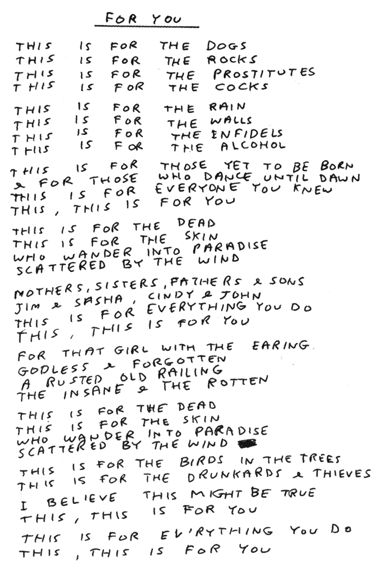 FOR YOU
THIS IS FOR THE DOGS
THIS IS FOR THE ROCKS
THIS IS FOR THE PROSTITUTES
THIS IS FOR THE COCKS
THIS IS FOR THE RAIN
THIS IS FOR THE WALLS
THIS IS FOR THE INFIDELS
THIS IS FOR THE ALCOHOL
THIS IS FOR THOSE YET TO BE BORN
& FOR THOSE WHO DANCE UNTIL DAWN
THIS IS FOR EVERYONE YOU KNEW
THIS, THIS IS FOR YOU
THIS IS FOR THE DEAD
THIS IS FOR THE SKIN
WHO WANDER INTO PARADISE
SCATTERED BY THE WIND
MOTHERS, SISTERS, FATHERS & SONS
JIM & SASHA, CINDY & JOHN
THIS IS FOR EVERYTHING YOU DO
THIS, THIS IS FOR YOU
FOR THAT GIRL WITH THE EARING
GODLESS & FORGOTTEN
A RUSTED OLD RAILING
THE INSANE & THE ROTTEN
THIS IS FOR THE DEAD
THIS IS FOR THE SKIN
WHO WANDER INTO PARADISE
SCATTERED BY THE WIND
THIS IS FOR THE BIRDS IN THE TREES
THIS IS FOR THE DRUNKARDS & THIEVES
I BELIEVE THIS MIGHT BE TRUE
THIS, THIS IS FOR YOU
THIS IS FOR EV'RYTHING YOU DO
THIS, THIS IS FOR YOU